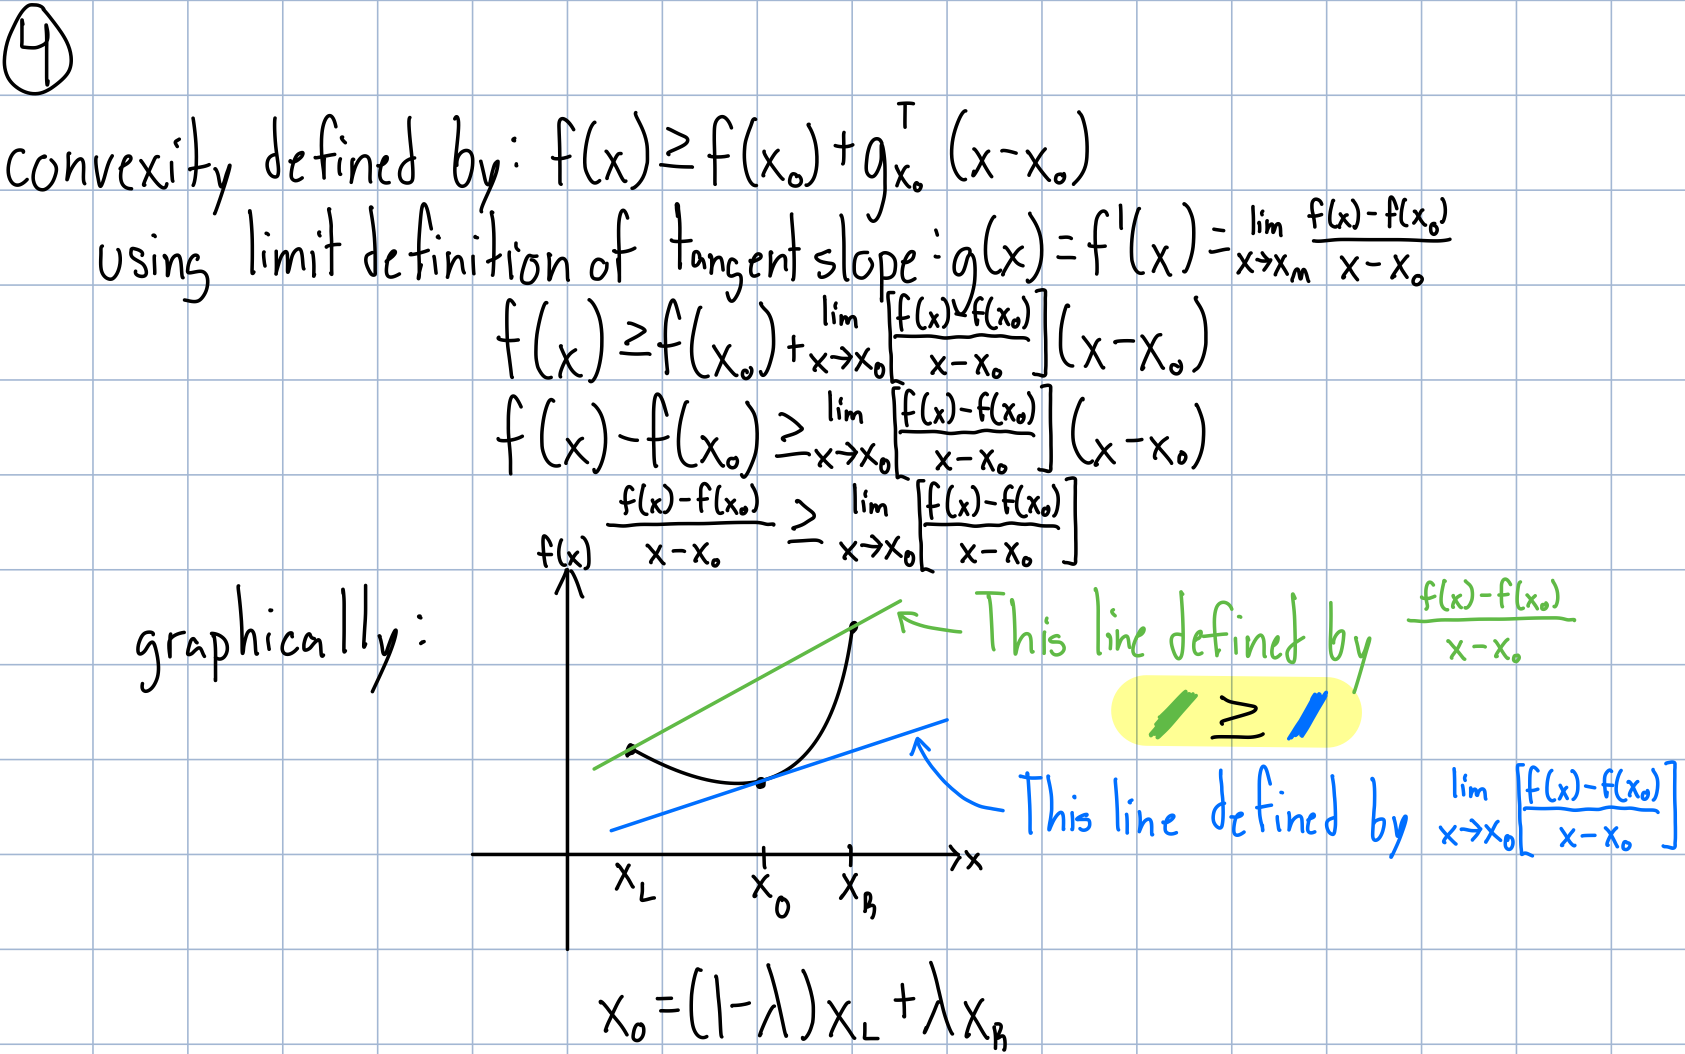 4
convexity defined by: f(x) ≥ f(x₀) + g_{x₀}^T (x-x₀)
using limit definition of tangent slope: g(x) = f'(x) = lim_{x→x_m} \frac{f(x)-f(x₀)}{x-x₀}
f(x) ≥ f(x₀) + lim_{x→x₀} [\frac{f(x)-f(x₀)}{x-x₀}] (x-x₀)
f(x) - f(x₀) ≥ lim_{x→x₀} [\frac{f(x)-f(x₀)}{x-x₀}] (x-x₀)
\frac{f(x)-f(x₀)}{x-x₀} ≥ lim_{x→x₀} [\frac{f(x)-f(x₀)}{x-x₀}]
f(x)
graphically:
This line defined by \frac{f(x)-f(x₀)}{x-x₀}
≥
This line defined by lim_{x→x₀} [\frac{f(x)-f(x₀)}{x-x₀}]
x
x_L x_0 x_R
x₀ = (1-λ)x_L + λx_R